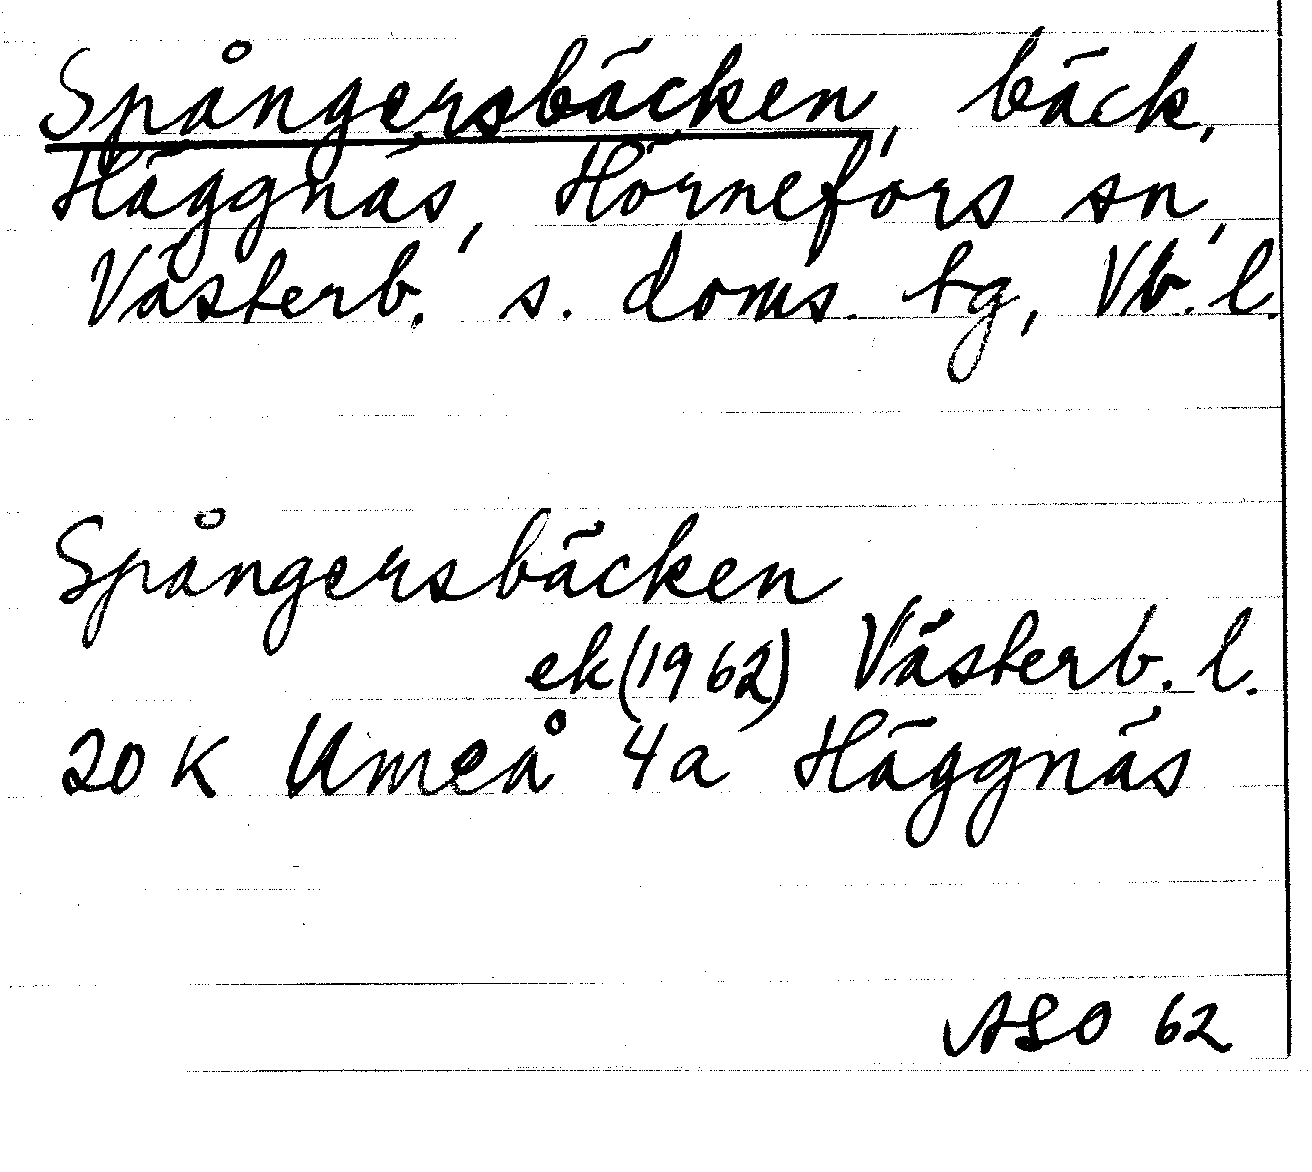 Spångersbäcken, bäck,
Häggnäs, Hörnefors sn,
Västerb. s. doms. tg, Vb. l.
Spångersbäcken
ek (1962) Västerb. l.
20 K Umeå 4a Häggnäs
ASO 62